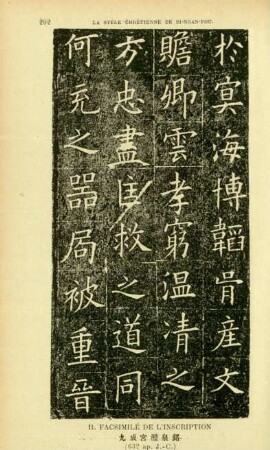 202 LA STÈLE CHRÉTIENNE DE SI-NGAN-FOU.
扵㝠海博韜胄産文
贍卿雲孝窮温凊之
方忠盡匡救之道同
何充之器局被重晉
II. FACSIMILÉ DE L'INSCRIPTION
九成宮醴泉銘
(632 ap. J.-C.)